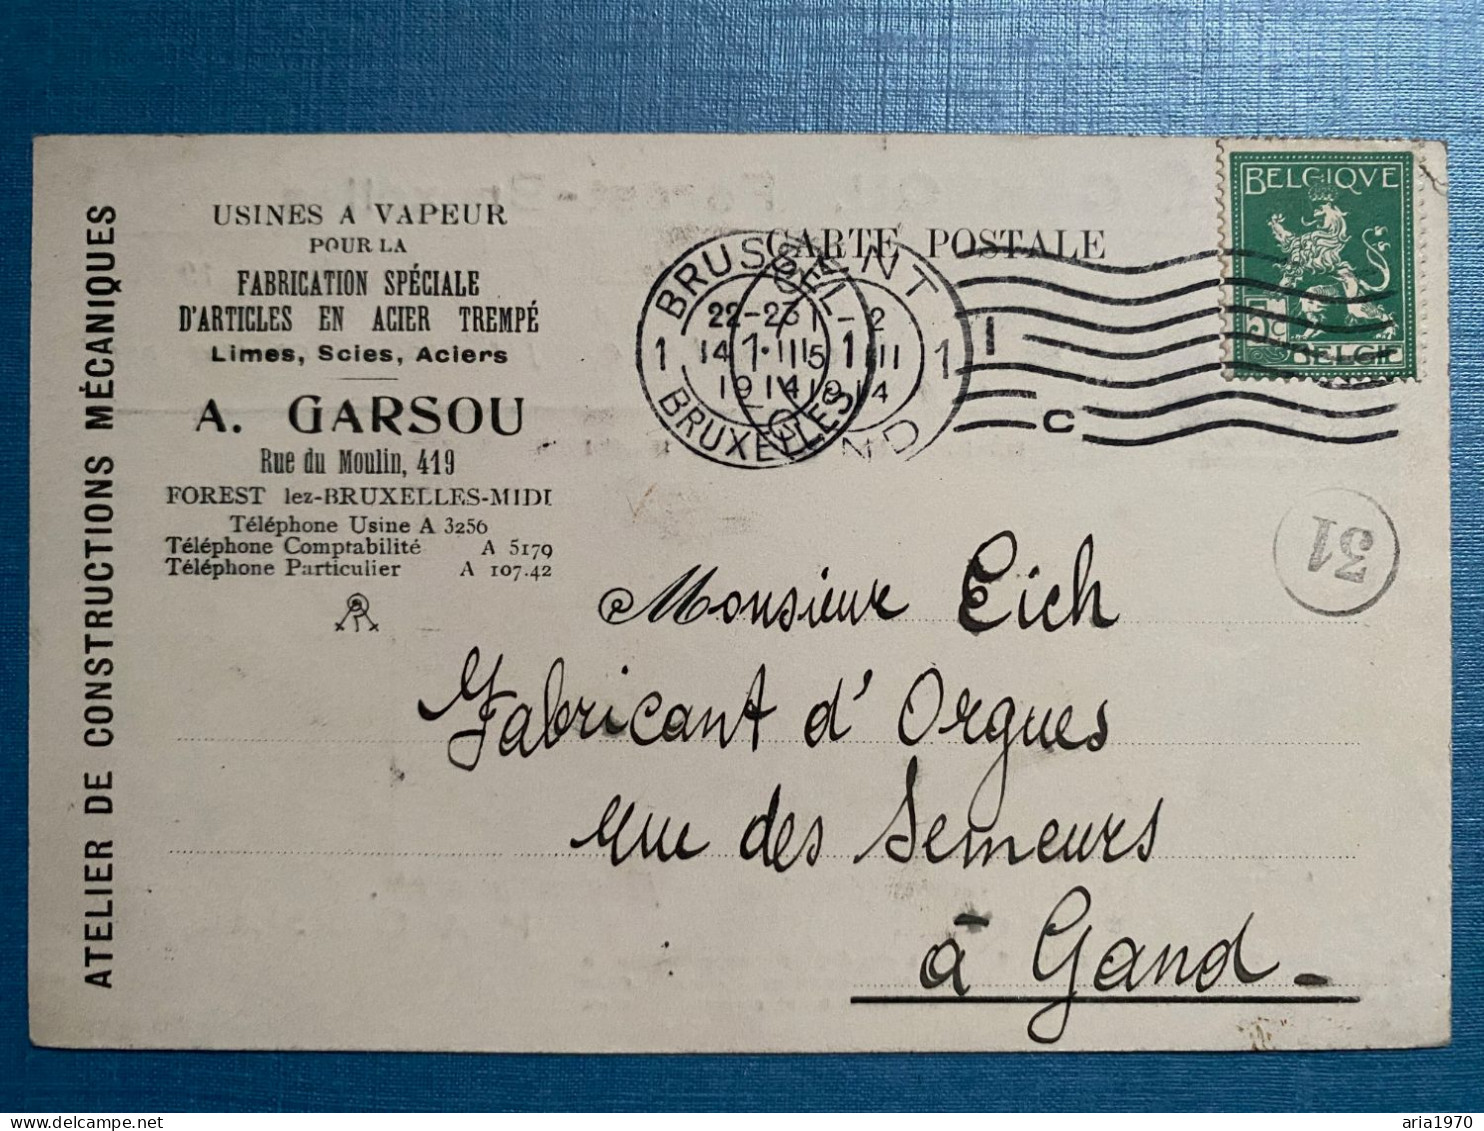 ATELIER DE CONSTRUCTIONS MÉCANIQUES
USINES A VAPEUR
POUR LA
FABRICATION SPÉCIALE
D'ARTICLES EN ACIER TREMPÉ
Limes, Scies, Aciers
A. GARSOU
Rue du Moulin, 419
FOREST lez-BRUXELLES-MIDI
Téléphone Usine A 3256
Téléphone Comptabilité A 5179
Téléphone Particulier A 107.42
CARTE POSTALE
BRUSSEL
1 22-23 1
14·III
1914
BRUXELLES
GENT
1 1-2 1
15 III
1914
GAND
1
C
BELGIQVE
5c
BELGIE
31
Monsieur Eich
Fabricant d'Orgues
rue des Semeurs
à Gand -
aria1970